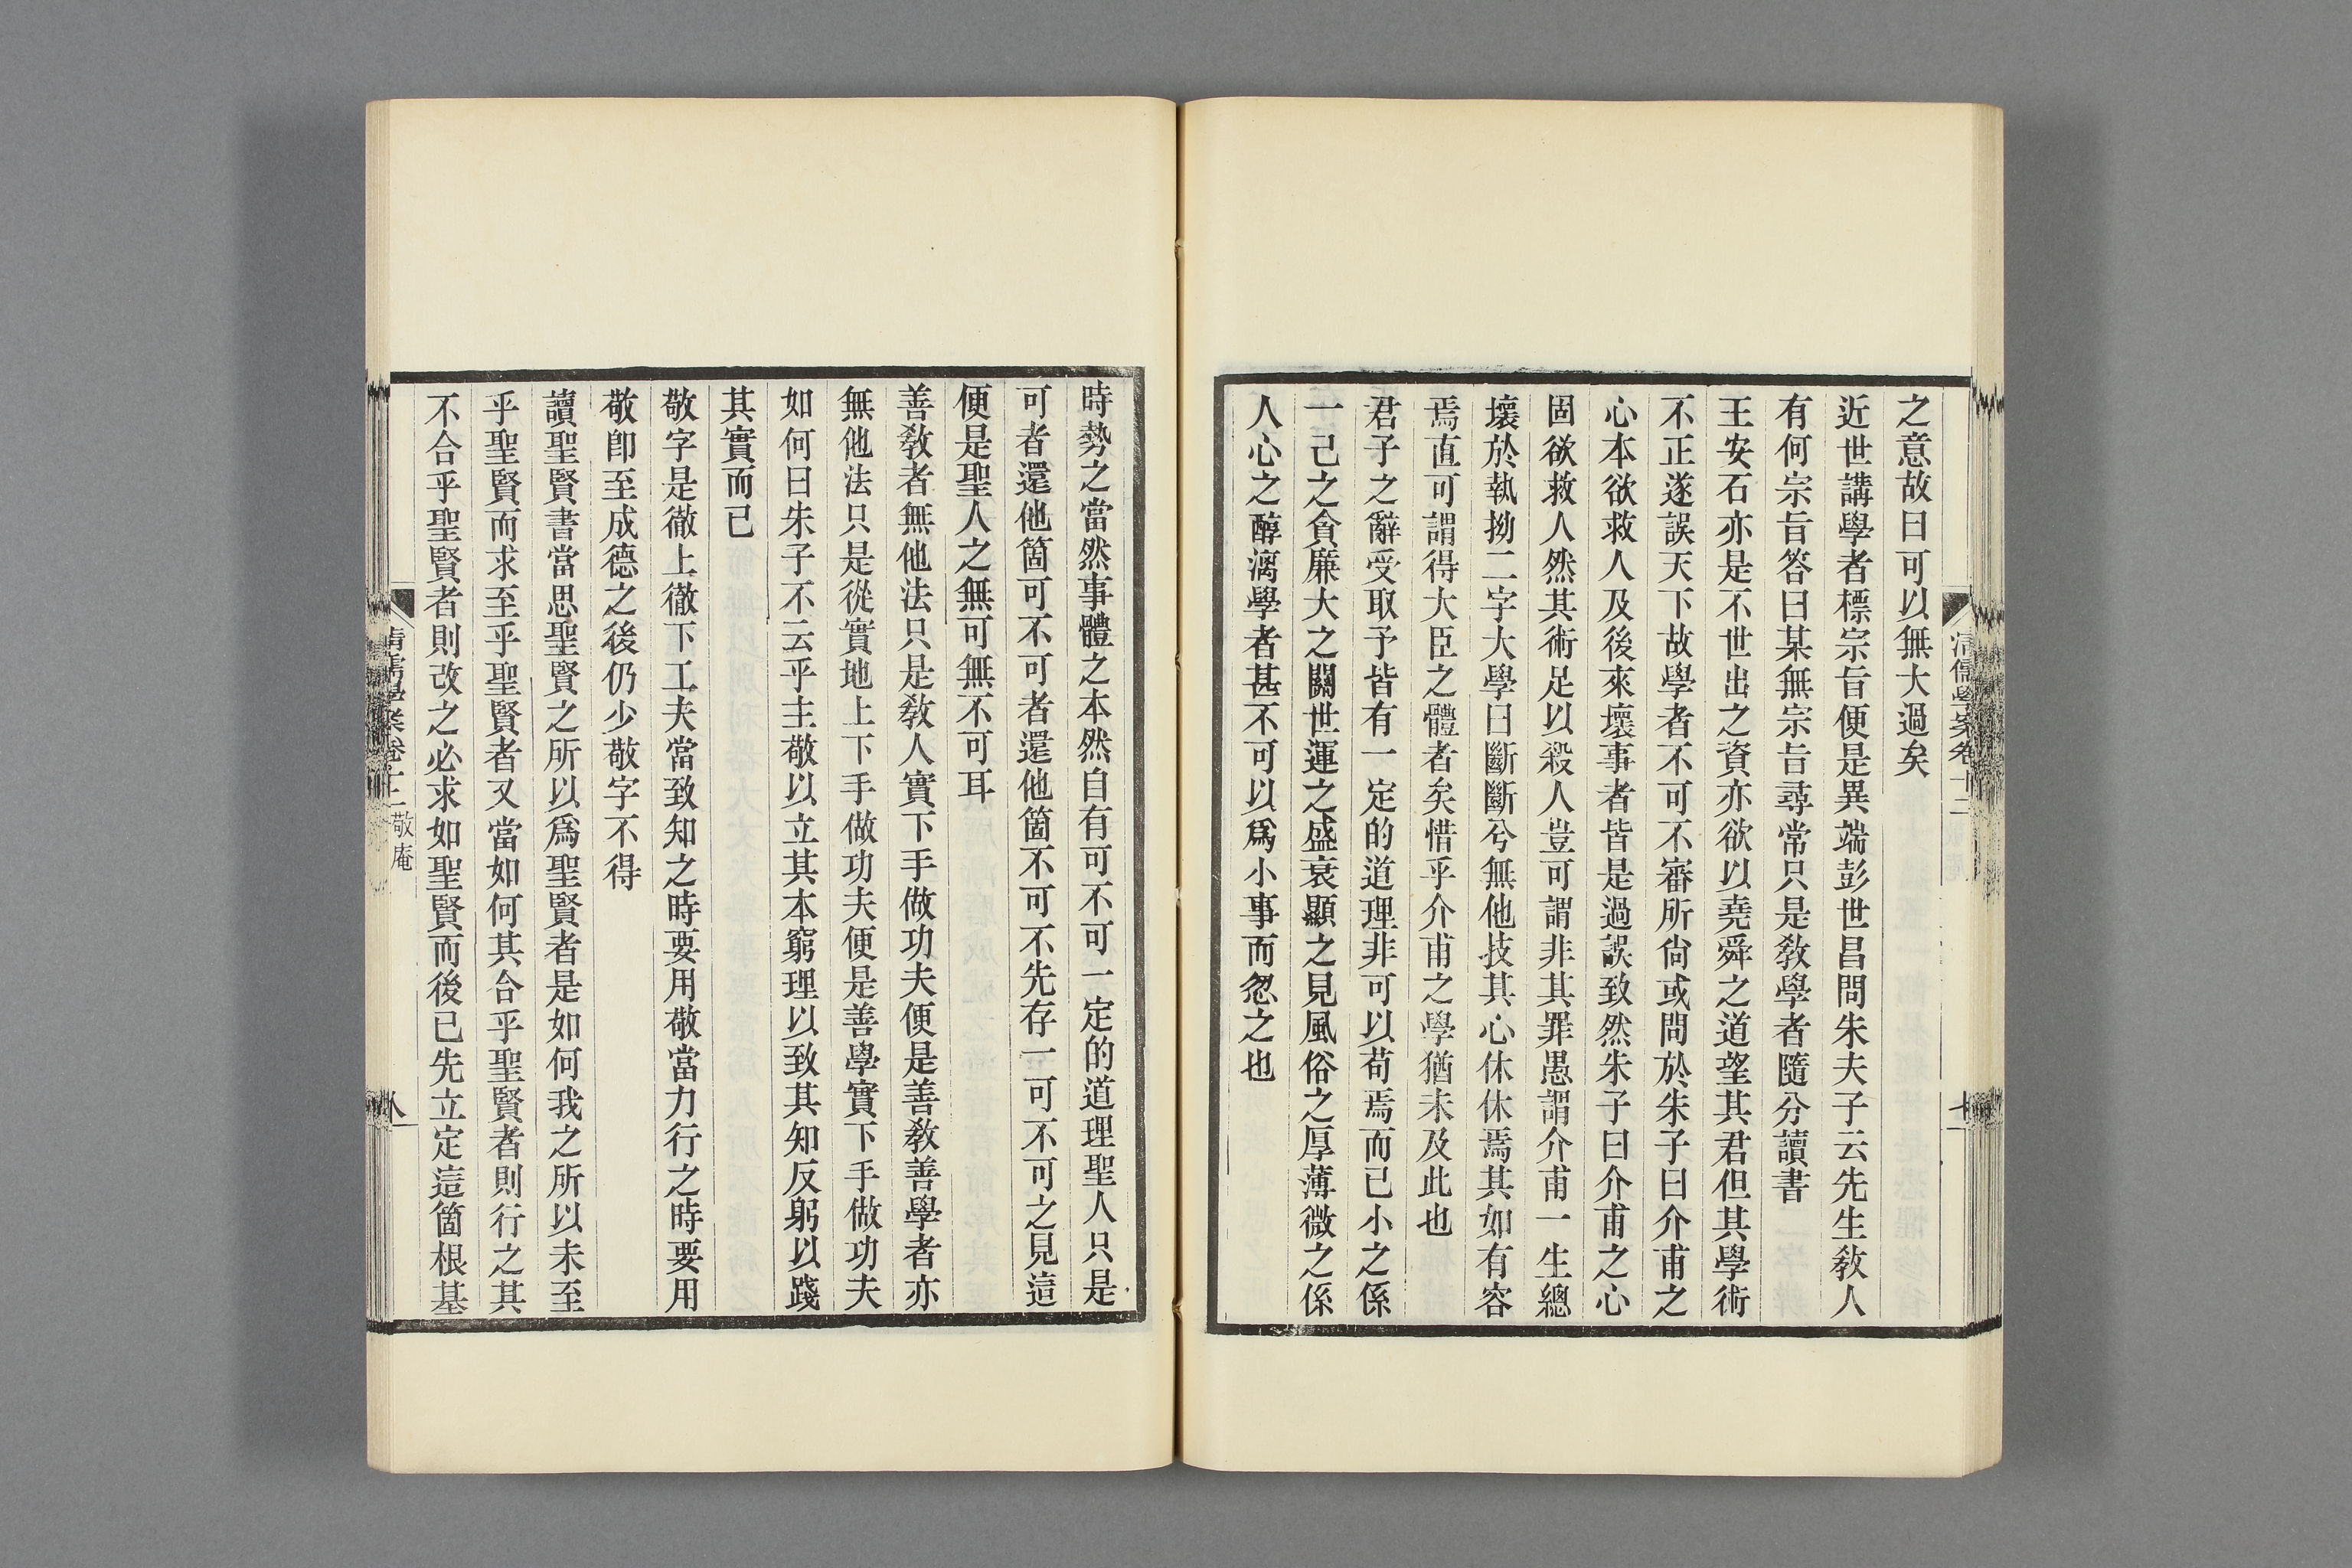 清儒學案卷十二
七
之意故曰可以無大過矣
近世講學者標宗旨便是異端彭世昌問朱夫子云先生教人
有何宗旨答曰某無宗旨尋常只是教學者隨分讀書
王安石亦是不世出之資亦欲以堯舜之道望其君但其學術
不正遂誤天下故學者不可不審所尙或問於朱子曰介甫之
心本欲救人及後來壞事者皆是過誤致然朱子曰介甫之心
固欲救人然其術足以殺人豈可謂非其罪愚謂介甫一生總
壞於執拗二字大學曰斷斷兮無他技其心休休焉其如有容
焉直可謂得大臣之體者矣惜乎介甫之學猶未及此也
君子之辭受取予皆有一定的道理非可以苟焉而已小之係
一己之貪廉大之關世運之盛衰顯之見風俗之厚薄微之係
人心之醇漓學者甚不可以爲小事而忽之也
時勢之當然事體之本然自有可不可一定的道理聖人只是
可者還他箇可不可者還他箇不可不先存一可不可之見這
便是聖人之無可無不可耳
善教者無他法只是教人實下手做功夫便是善教善學者亦
無他法只是從實地上下手做功夫便是善學實下手做功夫
如何曰朱子不云乎主敬以立其本窮理以致其知反躬以踐
其實而已
敬字是徹上徹下工夫當致知之時要用敬當力行之時要用
敬卽至成德之後仍少敬字不得
讀聖賢書當思聖賢之所以爲聖賢者是如何我之所以未至
乎聖賢而求至乎聖賢者又當如何其合乎聖賢者則行之其
不合乎聖賢者則改之必求如聖賢而後已先立定這箇根基
清儒學案卷十二 敬庵
八